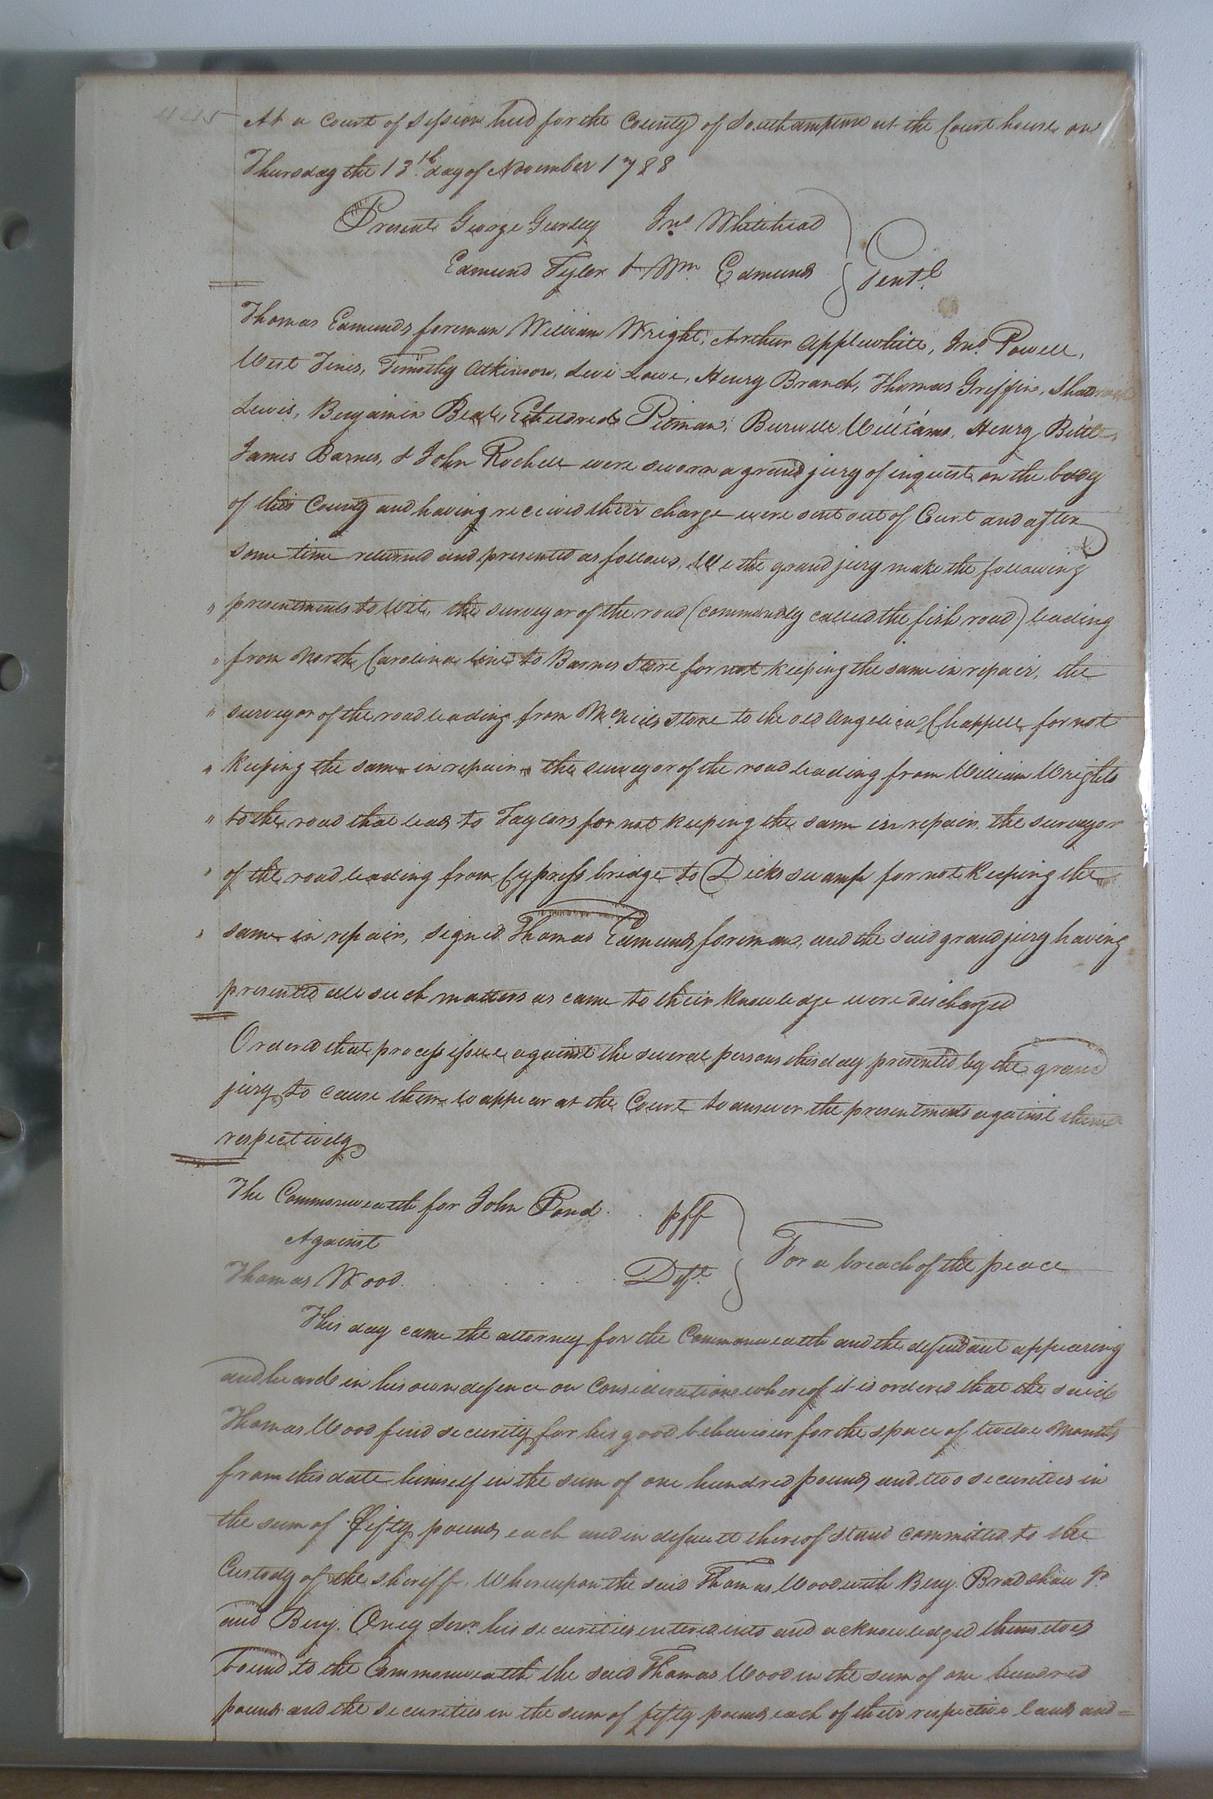 445
At a Court of Session held for the County of Southampton at the Court house on
Thursday the 13th day of November 1788
Present George Gurley Jno. Whitehead
Edmund Tyler & Wm. Edmunds Gentl.
Thomas Edmunds foreman William Wright, Arthur Applewhite, Jno. Powell,
West Tines, Timothy Atkinson, Levi Lowe, Henry Branch, Thomas Griffin, Shadrach
Lewis, Benjamin Beal, Etheldred Pitman, Burwell Williams, Henry Bittle,
James Barnes, & John Rochell were sworn a grand jury of inquest on the body
of this County and having received their charge were sent out of Court and after
some time returned and presented as follows, We the grand jury make the following
presentments to Wit, the surveyor of the road (commonly called the fish road) leading
from North Carolina line to Barnes Store for not keeping the same in repair, the
surveyor of the road leading from store to the old Angelica Chappell for not
keeping the same in repair, the surveyor of the road leading from William Wrights
to the road that leads to Taylors for not keeping the same in repair, the surveyor
of the road leading from Cypress bridge to Dicks swamp for not keeping the
same in repair, signed Thomas Edmunds foreman, and the said grand jury having
presented all such matters as came to their knowledge were discharged
Ordered that process issue against the several persons this day presented by the grand
jury to cause them to appear at the Court to answer the presentments against them
respectively
The Commonwealth for John Pond . . pff
Against
Thomas Wood . . . . . . Deft. For a breach of the peace
This day came the attorney for the Commonwealth and the defendant appearing
and heard in his own defence on Consideration whereof it is ordered that the said
Thomas Wood find security for his good behaviour for the space of twelve Months
from this date himself in the sum of one hundred pounds and two securities in
the sum of fifty pounds each and in default thereof stand committed to the
Custody of the sheriff. Whereupon the said Thomas Wood with Benj. Bradshaw Jr.
and Benj. Oney Senr. his securities entered into and acknowledged themselves
bound to the Commonwealth the said Thomas Wood in the sum of one hundred
pounds and the securities in the sum of fifty pounds each of their respective lands and=